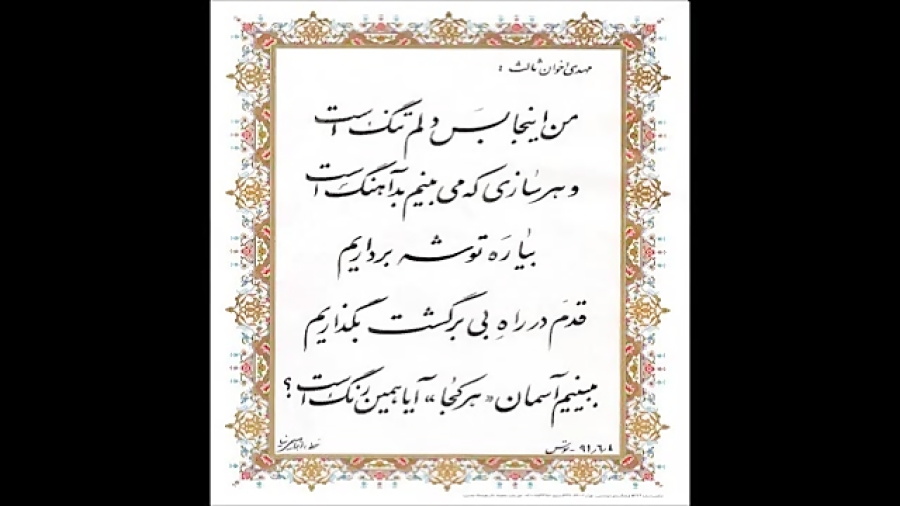 مهدی اخوان ثالث :
من اینجا بس دلم تنگ است
و هر سازی که می بینم بدآهنگ است
بیا ره توشه برداریم
قدم در راه بی برگشت بگذاریم
ببینیم آسمان «هر کجا» آیا همین رنگ است؟
۹۱٫۶٫۸ -
خط :